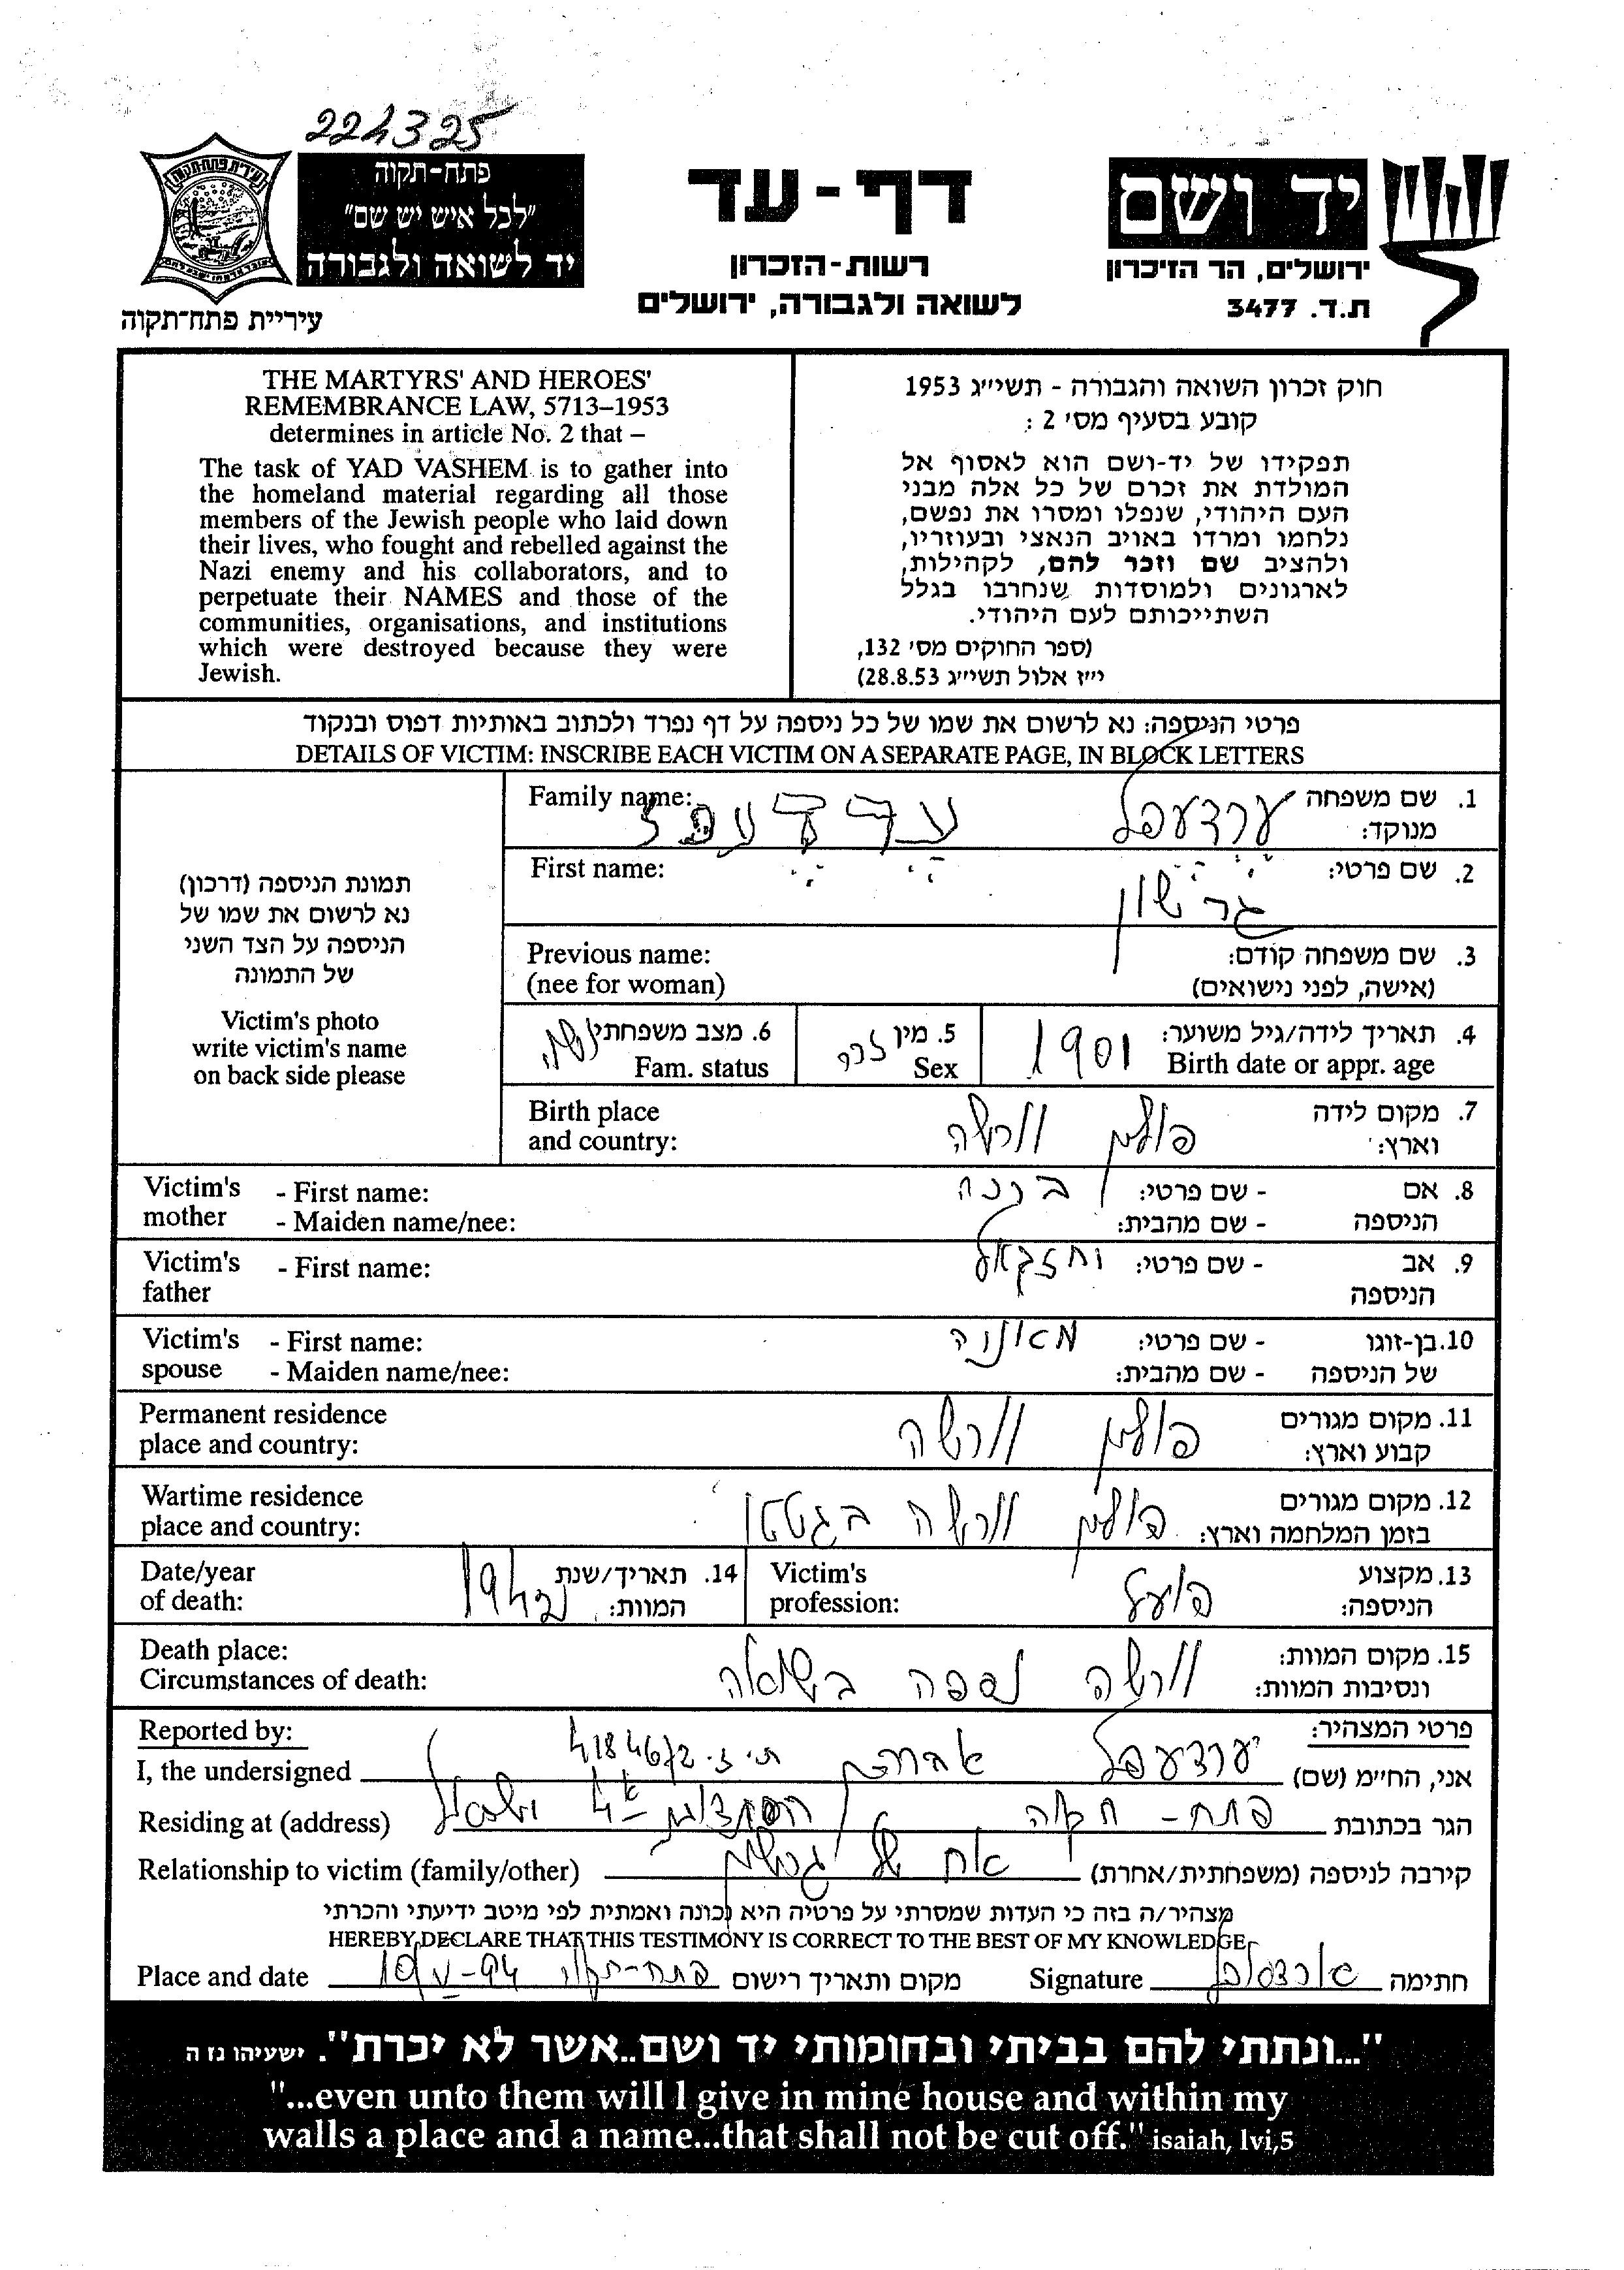 224325
פתח-תקוה
"לכל איש יש שם"
יד לשואה ולגבורה
עיריית פתח-תקוה
דף-עד
רשות-הזכרון
לשואה ולגבורה, ירושלים
יד ושם
ירושלים, הר הזיכרון
ת.ד. 3477
THE MARTYRS' AND HEROES'
REMEMBRANCE LAW, 5713–1953
determines in article No. 2 that –
The task of YAD VASHEM is to gather into
the homeland material regarding all those
members of the Jewish people who laid down
their lives, who fought and rebelled against the
Nazi enemy and his collaborators, and to
perpetuate their NAMES and those of the
communities, organisations, and institutions
which were destroyed because they were
Jewish.
חוק זכרון השואה והגבורה - תשי״ג 1953
קובע בסעיף מס׳ 2 :
תפקידו של יד-ושם הוא לאסוף אל
המולדת את זכרם של כל אלה מבני
העם היהודי, שנפלו ומסרו את נפשם,
נלחמו ומרדו באויב הנאצי ובעוזריו,
ולהציב שם וזכר להם, לקהילות,
לארגונים ולמוסדות שנחרבו בגלל
השתייכותם לעם היהודי.
(ספר החוקים מס׳ 132,
י״ז אלול תשי״ג 28.8.53)
פרטי הניספה: נא לרשום את שמו של כל ניספה על דף נפרד ולכתוב באותיות דפוס ובנקוד
DETAILS OF VICTIM: INSCRIBE EACH VICTIM ON A SEPARATE PAGE, IN BLOCK LETTERS
תמונת הניספה (דרכון)
נא לרשום את שמו של
הניספה על הצד השני
של התמונה
Victim's photo
write victim's name
on back side please
1. שם משפחה ערדעפל Family name:
מנוקד:
2. שם פרטי: גרשון First name:
3. שם משפחה קודם: Previous name:
(אישה, לפני נישואים) (nee for woman)
4. תאריך לידה/גיל משוער: 1901 5. מין זכר 6. מצב משפחתי נשוי
Birth date or appr. age Sex Fam. status
7. מקום לידה פולין וורשה Birth place
וארץ: and country:
8. אם - שם פרטי: ברכה Victim's - First name:
הניספה - שם מהבית: mother - Maiden name/nee:
9. אב - שם פרטי: יחזקאל Victim's - First name:
הניספה father
10. בן-זוגו - שם פרטי: Victim's - First name:
של הניספה - שם מהבית: spouse - Maiden name/nee:
11. מקום מגורים פולין וורשה Permanent residence
קבוע וארץ: place and country:
12. מקום מגורים Wartime residence
בזמן המלחמה וארץ: פולין וורשה בגטו place and country:
13. מקצוע פועל Victim's 14. תאריך/שנת 1942 Date/year
הניספה: profession: המוות: of death:
15. מקום המוות: וורשה נספה בשואה Death place:
ונסיבות המוות: Circumstances of death:
פרטי המצהיר: Reported by:
אני, החי״מ (שם) ערדעפל אברהם ת.ז. 4184672 I, the undersigned
הגר בכתובת פתח-תקוה Residing at (address)
קירבה לניספה (משפחתית/אחרת) אח של גרשון Relationship to victim (family/other)
מצהיר/ה בזה כי העדות שמסרתי על פרטיה היא נכונה ואמתית לפי מיטב ידיעתי והכרתי
HEREBY DECLARE THAT THIS TESTIMONY IS CORRECT TO THE BEST OF MY KNOWLEDGE
חתימה Signature מקום ותאריך רישום פתח-תקוה Place and date
"...ונתתי להם בביתי ובחומותי יד ושם..אשר לא יכרת". ישעיהו נז ה
"...even unto them will I give in mine house and within my
walls a place and a name...that shall not be cut off." isaiah, lvi,5